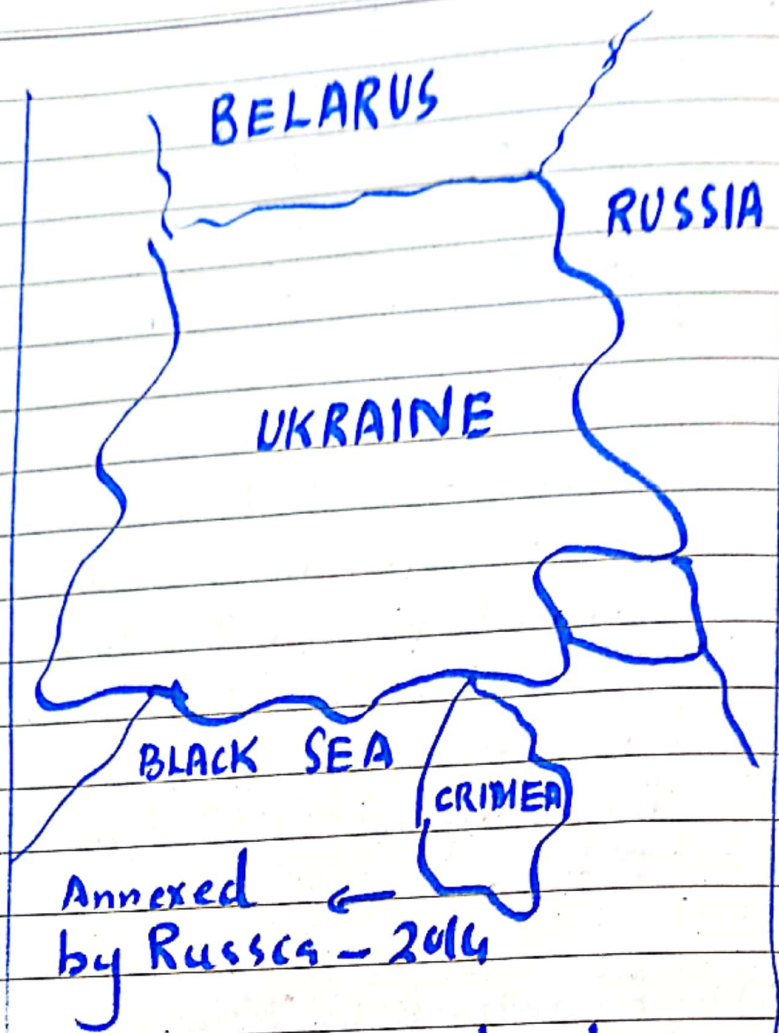 BELARUS
RUSSIA
UKRAINE
BLACK SEA
CRIMEA
Annexed ←
by Russca - 2014